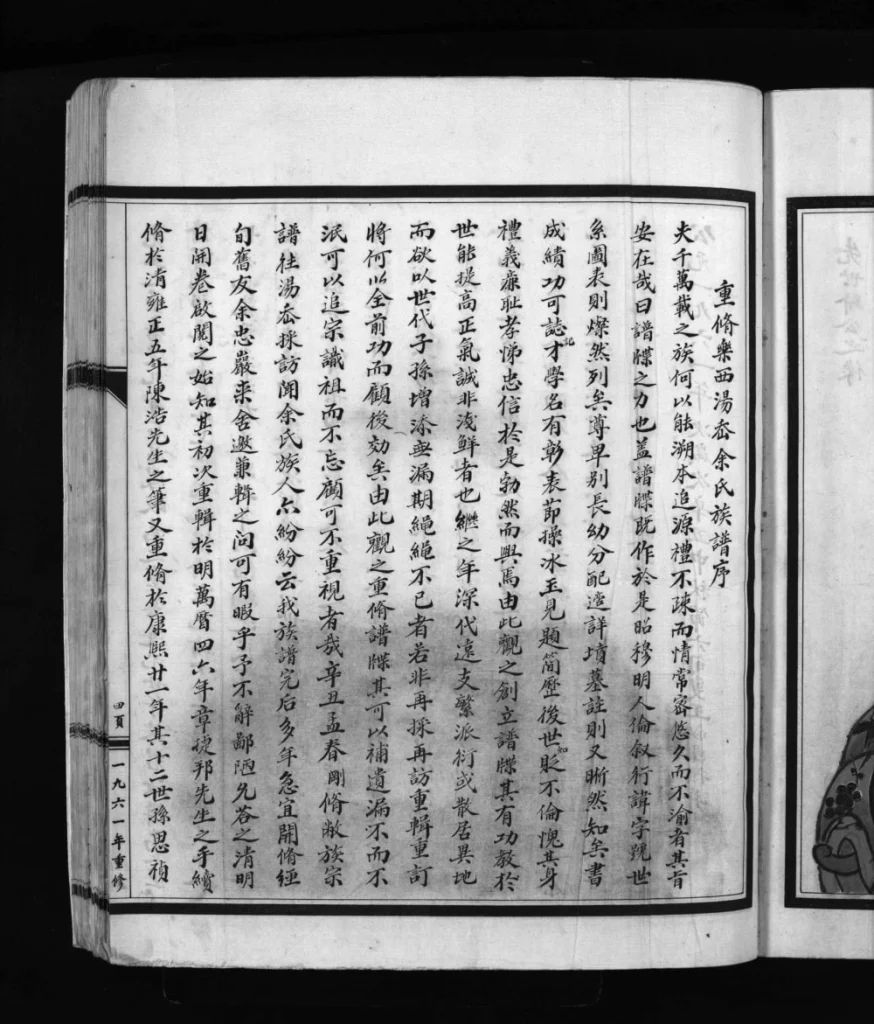 重脩樂西湯岙余氏族譜序
夫千萬載之族何以能溯本追源禮不疎而情常密悠久而不渝者其旨
安在哉曰譜牒之力也盖譜牒既作於是昭穆明人倫叙行諱字號世
系圖表則燦然列矣尊卑别長幼分配適詳墳墓註則又晰然知矣書
成績功可誌記才學名有彰表節操冰玉見題簡歷後世知貶不倫愧其身
禮義廉耻孝悌忠信於是勃然而興焉由此觀之創立譜牒其有功教於
世能提高正氣誠非淺鲜者也繼之年深代遠支繁派衍或散居異地
而欲以世代子孫增添無漏期繩繩不已者若非再採再訪重輯重訂
將何以全前功而顧後効矣由此觀之重脩譜牒其可以補遺漏不而不
泯可以追宗識祖而不忘顧可不重視者哉辛丑孟春剛脩敝族宗
譜往湯岙採訪聞余氏族人亦紛紛云我族譜完后多年急宜開脩經
旬舊友余忠嚴來舍邀兼輯之问可有暇乎予不辭鄙陋允荅之清明
日開卷啟閲之始知其初次重輯於明萬曆四六年章琔邦先生之手續
脩於清雍正五年陳浩先生之筆又重脩於康熙廿一年其十二世孫思禎
四頁
一九六一年重修